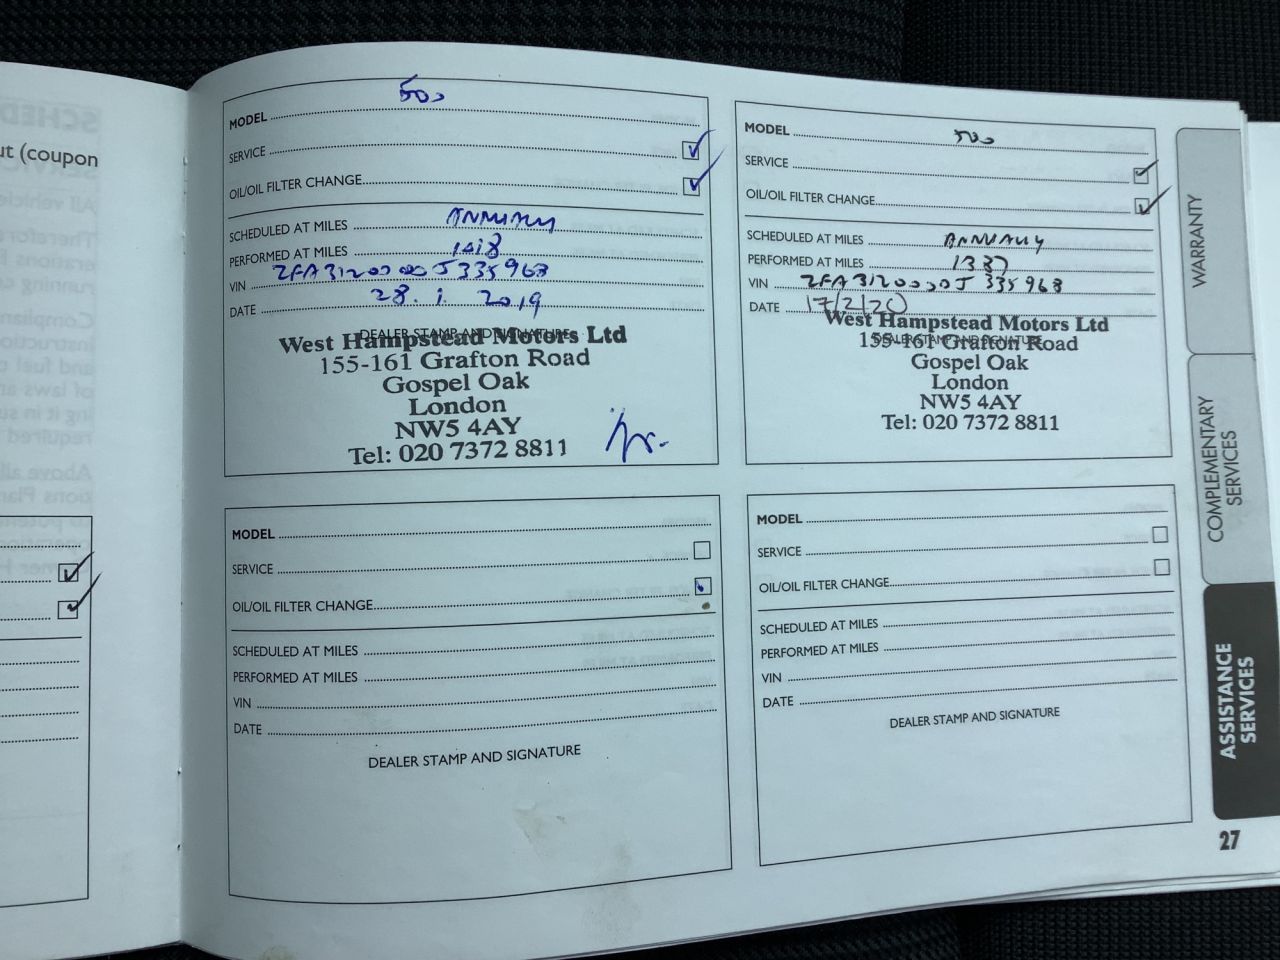 ut (coupon
MODEL 500
SERVICE
OIL/OIL FILTER CHANGE
SCHEDULED AT MILES ANNUALLY
PERFORMED AT MILES 1218
VIN ZFA3120000J335968
DATE 28. 1. 2019
DEALER STAMP AND SIGNATURE
West Hampstead Motors Ltd
155-161 Grafton Road
Gospel Oak
London
NW5 4AY
Tel: 020 7372 8811
MODEL 500
SERVICE
OIL/OIL FILTER CHANGE
SCHEDULED AT MILES ANNUALLY
PERFORMED AT MILES 1337
VIN ZFA3120000J335968
DATE 17/2/20
DEALER STAMP AND SIGNATURE
West Hampstead Motors Ltd
155-161 Grafton Road
Gospel Oak
London
NW5 4AY
Tel: 020 7372 8811
MODEL
SERVICE
OIL/OIL FILTER CHANGE
SCHEDULED AT MILES
PERFORMED AT MILES
VIN
DATE
DEALER STAMP AND SIGNATURE
MODEL
SERVICE
OIL/OIL FILTER CHANGE
SCHEDULED AT MILES
PERFORMED AT MILES
VIN
DATE
DEALER STAMP AND SIGNATURE
WARRANTY
COMPLEMENTARY
SERVICES
ASSISTANCE
SERVICES
27